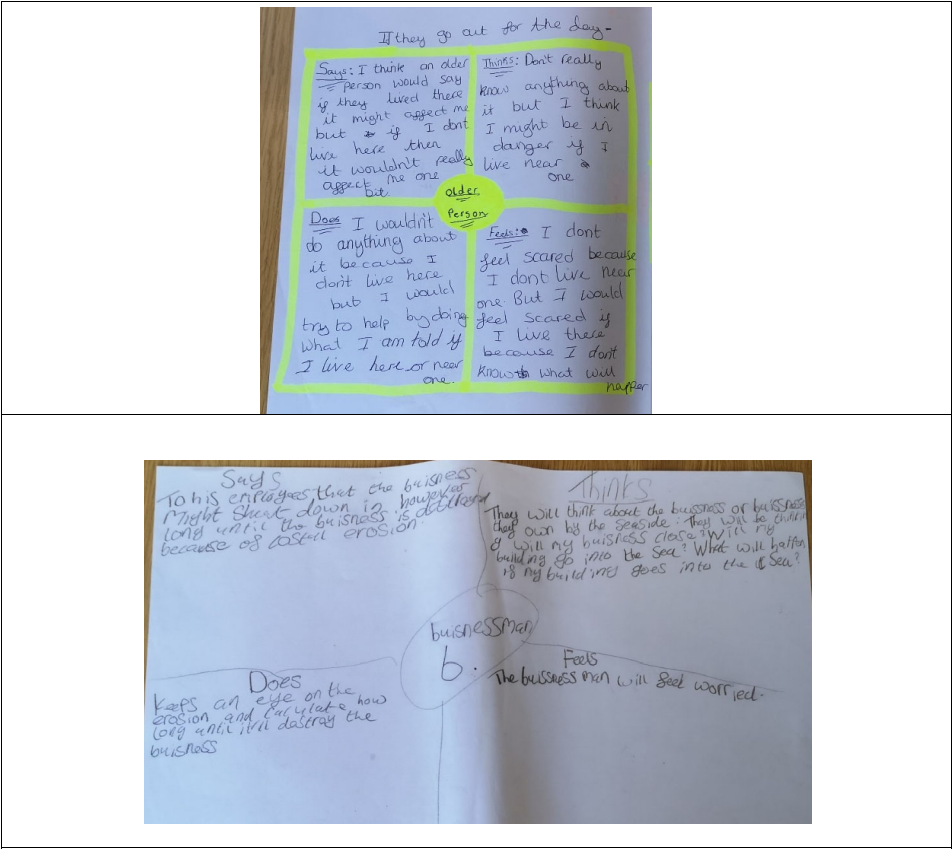 If they go out for the day-
Says: I think an older
person would say
if they lived there
it might affect me
but if I dont
live here then
it wouldn't really
affect me one
bit.
Thinks: Don't really
know anything about
it but I think
I might be in
danger if I
live near
one
older
Person
Does I wouldn't
do anything about
it because I
don't live here
but I would
try to help by doing
what I am told if
I live here or near
one.
Feels: I dont
feel scared because
I dont live near
one. But I would
feel scared if
I live there
because I dont
know what will
happen
Says
To his employees that the buisness
Might Shut down in however
long until the buisness is
because of costall erosion
Thinks
They will think about the bussness or buissnesses
they own by the seaside. They will be
will my buisness close? Will my
building go into the Sea? What will
if my building goes into the Sea?
buisnessman
6.
Does
Keeps an eye on the
erosion and calculate how
long until it destray the
buisness
Feels
The bussness man will feel worried.